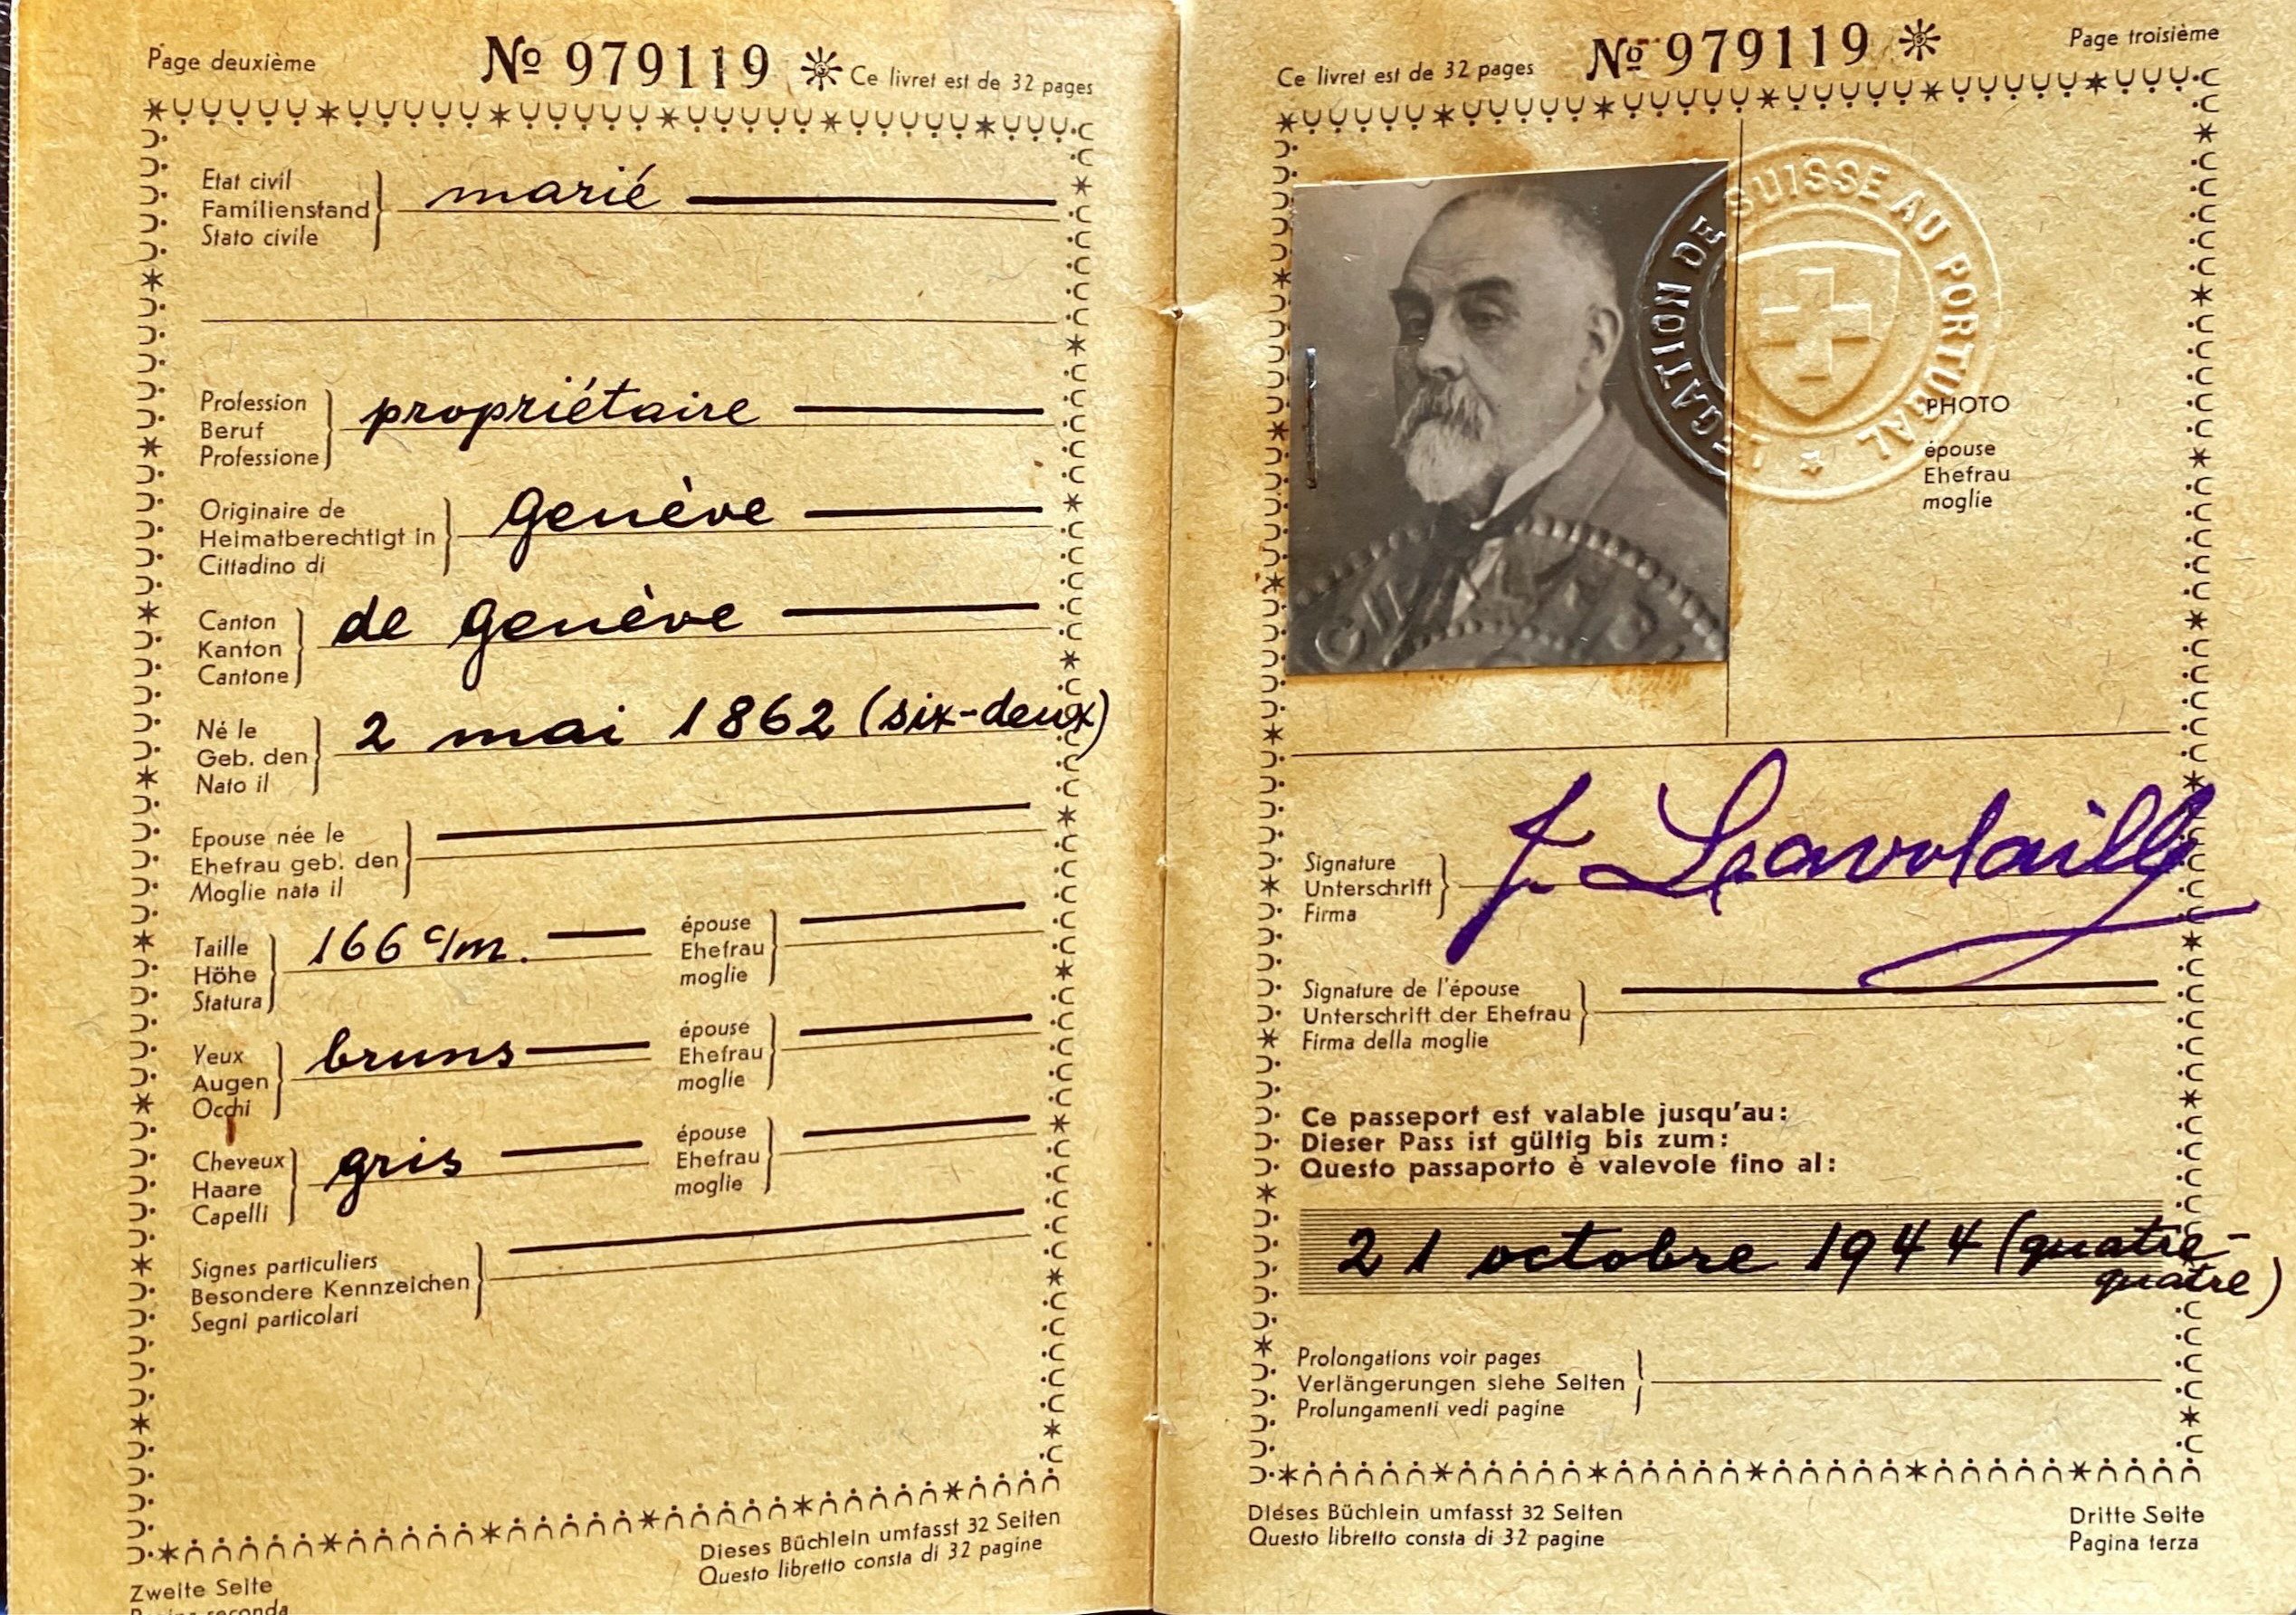 Page deuxième
№ 979119
Ce livret est de 32 pages
Etat civil
Familienstand
Stato civile
marié
Profession
Beruf
Professione
propriétaire
Originaire de
Heimatberechtigt in
Cittadino di
Genève
Canton
Kanton
Cantone
de Genève
Né le
Geb. den
Nato il
2 mai 1862 (six-deux)
Epouse née le
Ehefrau geb. den
Moglie nata il
Taille
Höhe
Statura
166 c/m.
épouse
Ehefrau
moglie
Yeux
Augen
Occhi
bruns
épouse
Ehefrau
moglie
Cheveux
Haare
Capelli
gris
épouse
Ehefrau
moglie
Signes particuliers
Besondere Kennzeichen
Segni particolari
Dieses Büchlein umfasst 32 Seiten
Questo libretto consta di 32 pagine
Zweite Seite
Pagina seconda
Ce livret est de 32 pages
№ 979119
Page troisième
LEGATION DE SUISSE AU PORTUGAL
PHOTO
épouse
Ehefrau
moglie
Signature
Unterschrift
Firma
J.
Signature de l'épouse
Unterschrift der Ehefrau
Firma della moglie
Ce passeport est valable jusqu'au:
Dieser Pass ist gültig bis zum:
Questo passaporto è valevole fino al:
21 octobre 1944 (quatre-
quatre)
Prolongations voir pages
Verlängerungen siehe Seiten
Prolungamenti vedi pagine
Dieses Büchlein umfasst 32 Seiten
Questo libretto consta di 32 pagine
Dritte Seite
Pagina terza